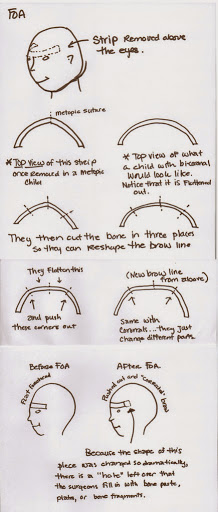 FOA
Strip Removed above
the eyes.
metopic suture
* Top View of this strip
once Removed in a metopic
child
* Top view of what
a child with bicoronal
would look like.
Notice that it is flattened
out.
They then cut the bone in three places
so they can Reshape the brow line
They flatten this
and push
these corners out
(New brow line
from above)
Same with
Coronals...they just
change different parts.
Before FOA
After FOA
Flat forehead
Pushed out and "corrected" forehead
Because the shape of this
piece was changed so dramatically,
there is a "hole" left over that
the surgeons fill in with bone parts,
plate, or bone fragments.